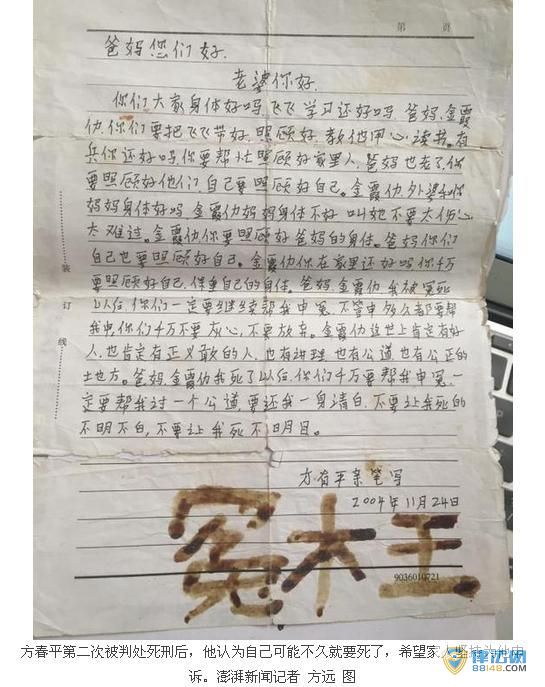 第 页
爸妈您们好.
老婆你好.
你们大家身体好吗,飞飞学习还好吗,爸妈,金霞
仂,你们要把飞飞带好.照顾好.教他用心读书.有
兵你还好吗.你要帮忙照顾好家里人,爸妈也老了.你
要照顾好他们,自己要照顾好自己。金霞仂,外婆和你
妈妈身体好吗.金霞仂妈妈身体不好 叫她不要太伤心
太难过。金霞仂你要照顾好爸妈的身体。爸妈你们
自己也要照顾好自己。金霞仂你在家里还好吗你千万
要照顾好自己,保重自己的身体。爸妈,金霞仂,我被冤死
以后,你们一定要继续帮我申冤.不管申多久都要帮
我申,你们千万不要灰心,不要放弃。金霞仂这世上肯定有好
人,也肯定有正义敢的人,也有讲理.也有公道.也有公正的
土地方。爸妈.金霞仂我死了以后,你们千万要帮我申冤.一
定要帮我讨一个公道.要还我一身清白.不要让我死的
不明不白,不要让我死不明目。
方春平亲笔写
2004年11月24日
冤枉
9036010721
装
订
线
方春平第二次被判处死刑后，他认为自己可能不久就要死了，希望家人坚持为他申
诉。澎湃新闻记者 方远 图
律法网
88148.com